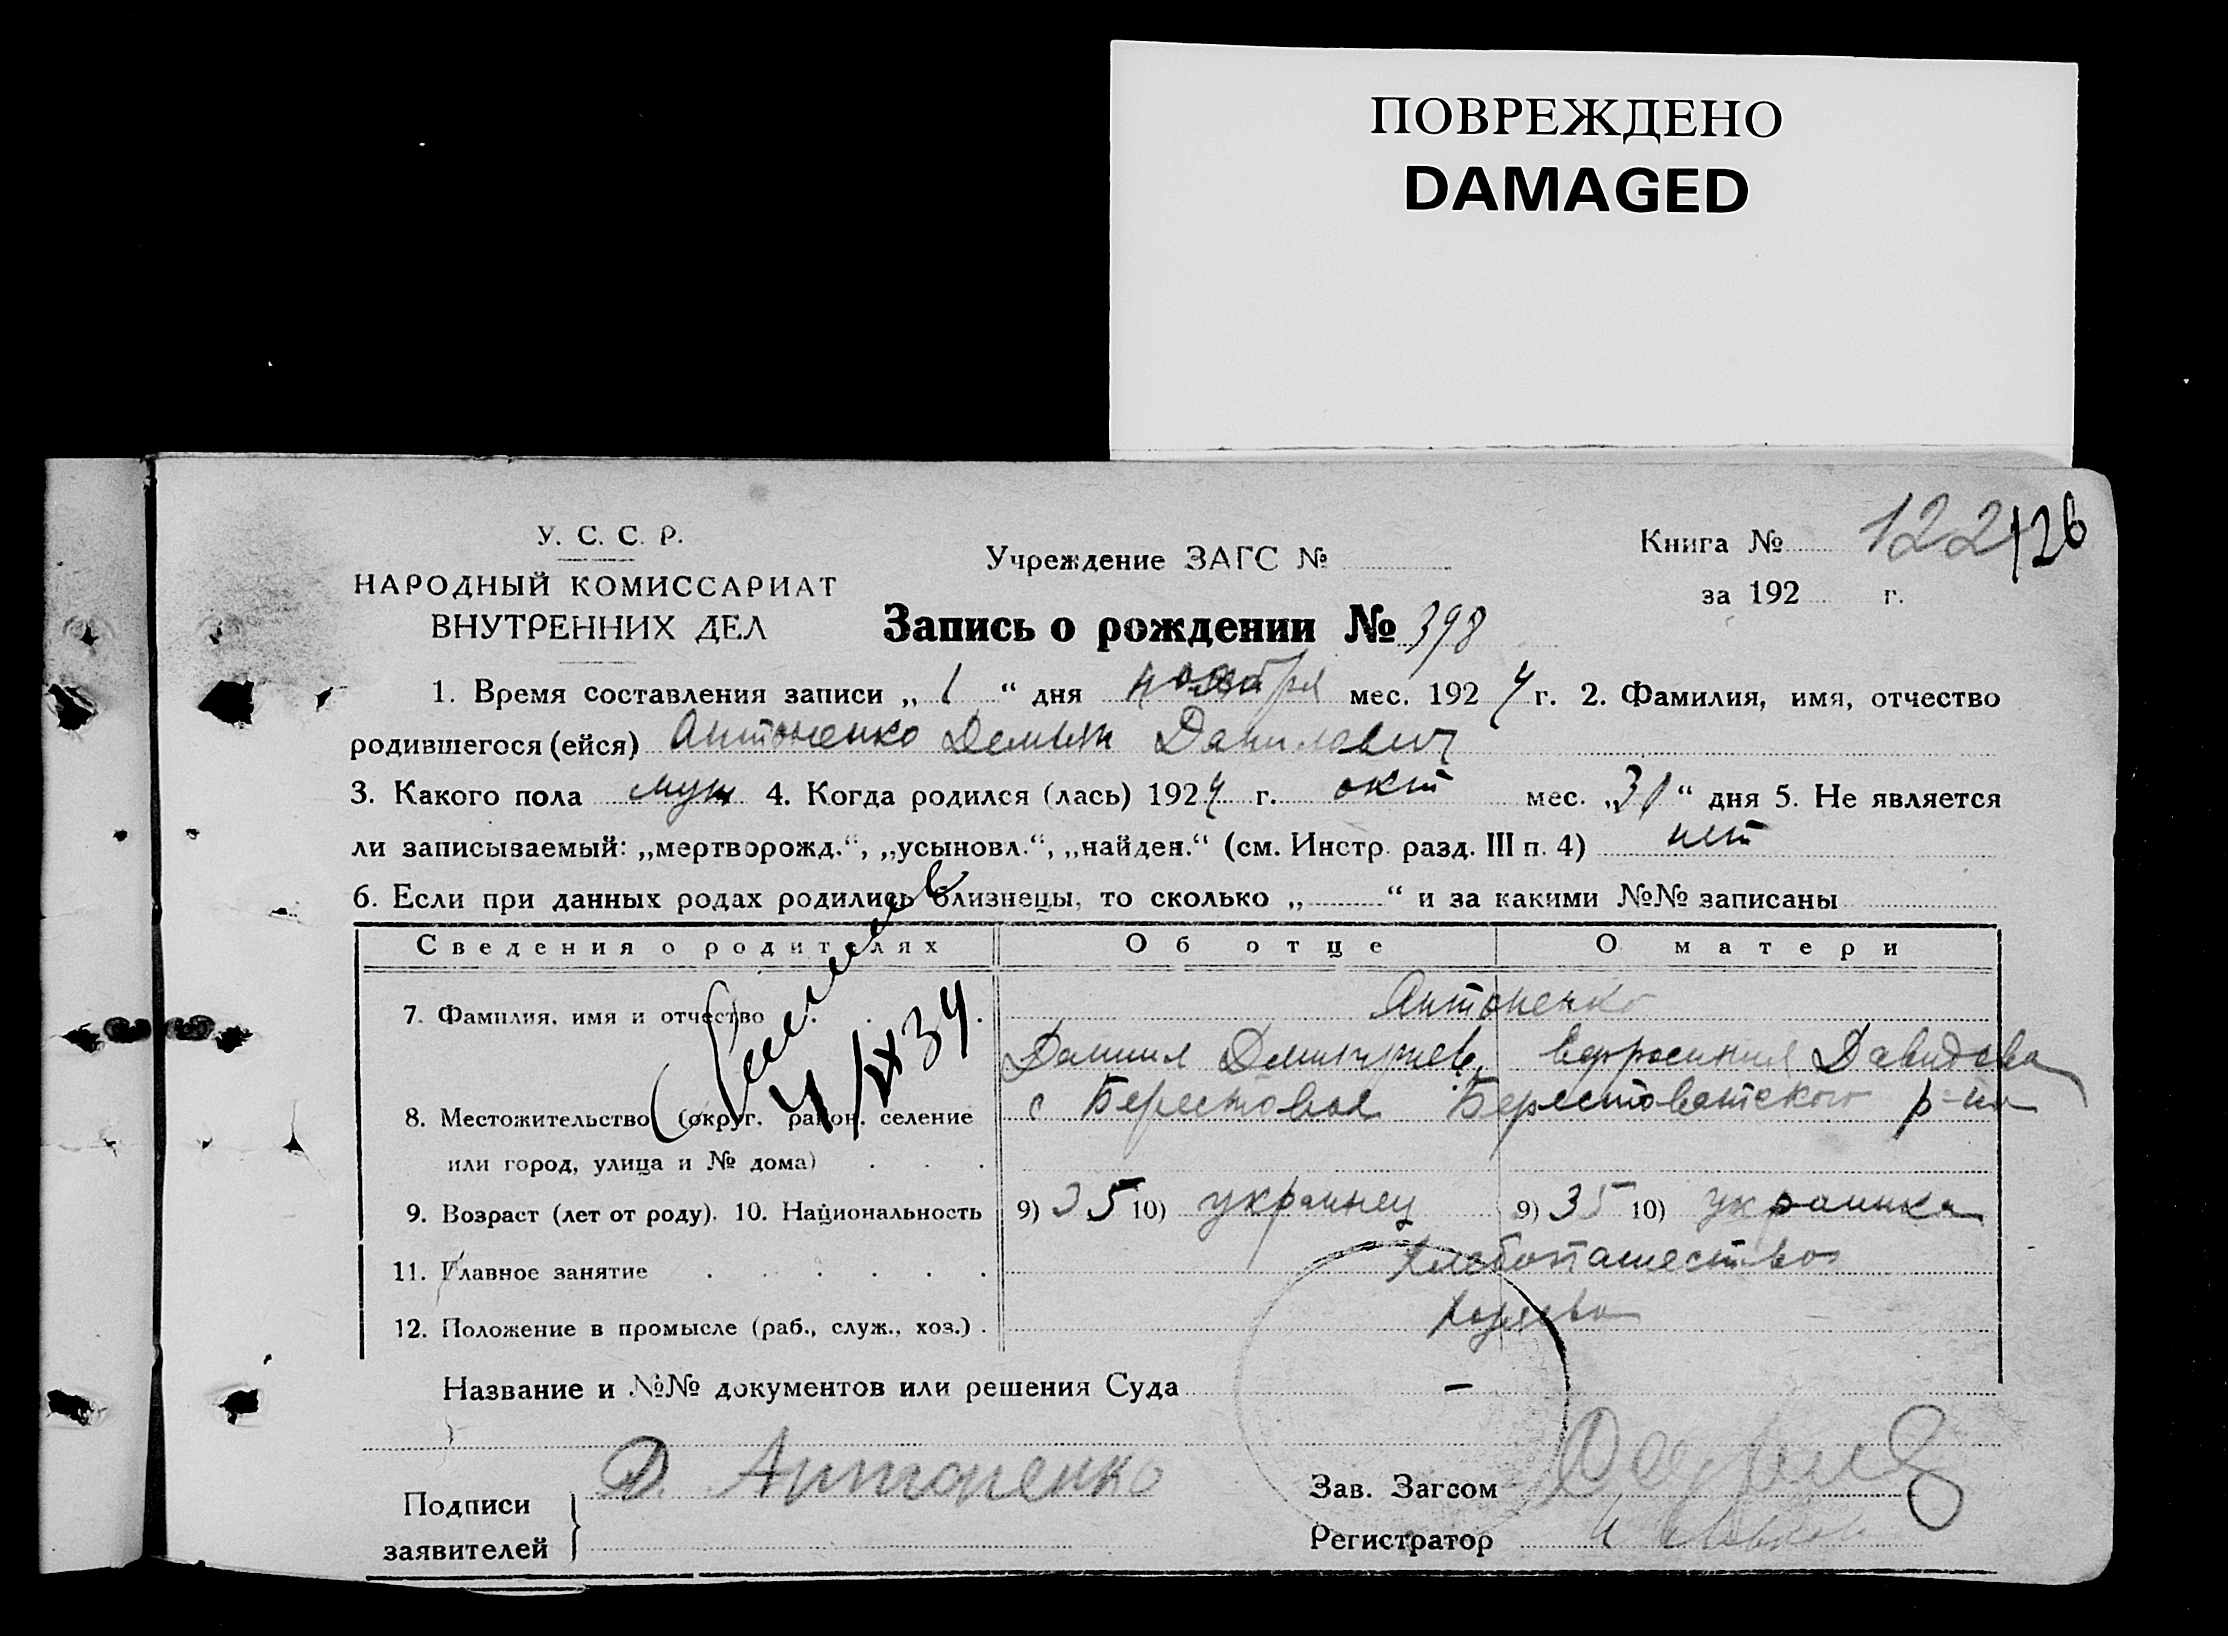 ПОВРЕЖДЕНО
DAMAGED
У. С. С. Р.
НАРОДНЫЙ КОМИССАРИАТ
ВНУТРЕННИХ ДЕЛ
Учреждение ЗАГС №
Книга № 122 126
за 192 г.
Запись о рождении № 398
1. Время составления записи „ 1 “ дня ноября мес. 1924 г. 2. Фамилия, имя, отчество
родившегося (ейся) Антоненко Демьян Данилович
3. Какого пола муж 4. Когда родился (лась) 1924 г. окт мес. „31“ дня 5. Не является
ли записываемый: „мертворожд.“, „усыновл.“, „найден.“ (см. Инстр. разд. III п. 4) нет
6. Если при данных родах родились близнецы, то сколько „ “ и за какими №№ записаны
Сведения о родителях Об отце О матери
7. Фамилия, имя и отчество Антоненко
Даниил Дмитриев. Давидова
8. Местожительство (округ, район, селение с Берестовая Берестовского р-на
или город, улица и № дома)
4/IX 34
9. Возраст (лет от роду). 10. Национальность 9) 35 10) украинец 9) 35 10) украинка
11. Главное занятие хлебопашество
12. Положение в промысле (раб., служ., хоз.)
Название и №№ документов или решения Суда —
Подписи заявителей Д. Антоненко
Зав. Загсом
Регистратор